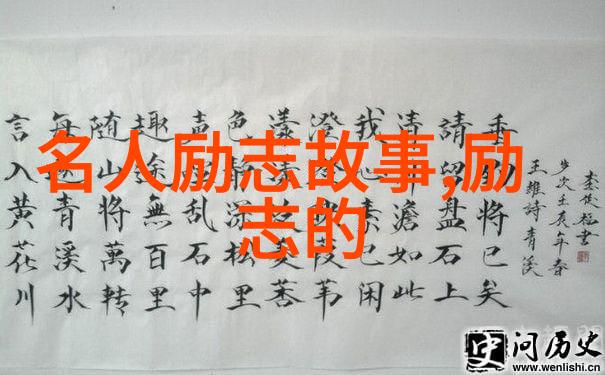 名人励志故事,励
志的
言入黄花川
每逐青溪水
随山將萬转
趣途無百里
声喧乱石中
色静深松里
漾漾泛菱荇
澄澄映葭苇
我心素已闲
清川澹如此
請留盘石上
垂钓將已矣
王維詩青溪
岁次壬辰年春
问历史
www.wenlishi.cn